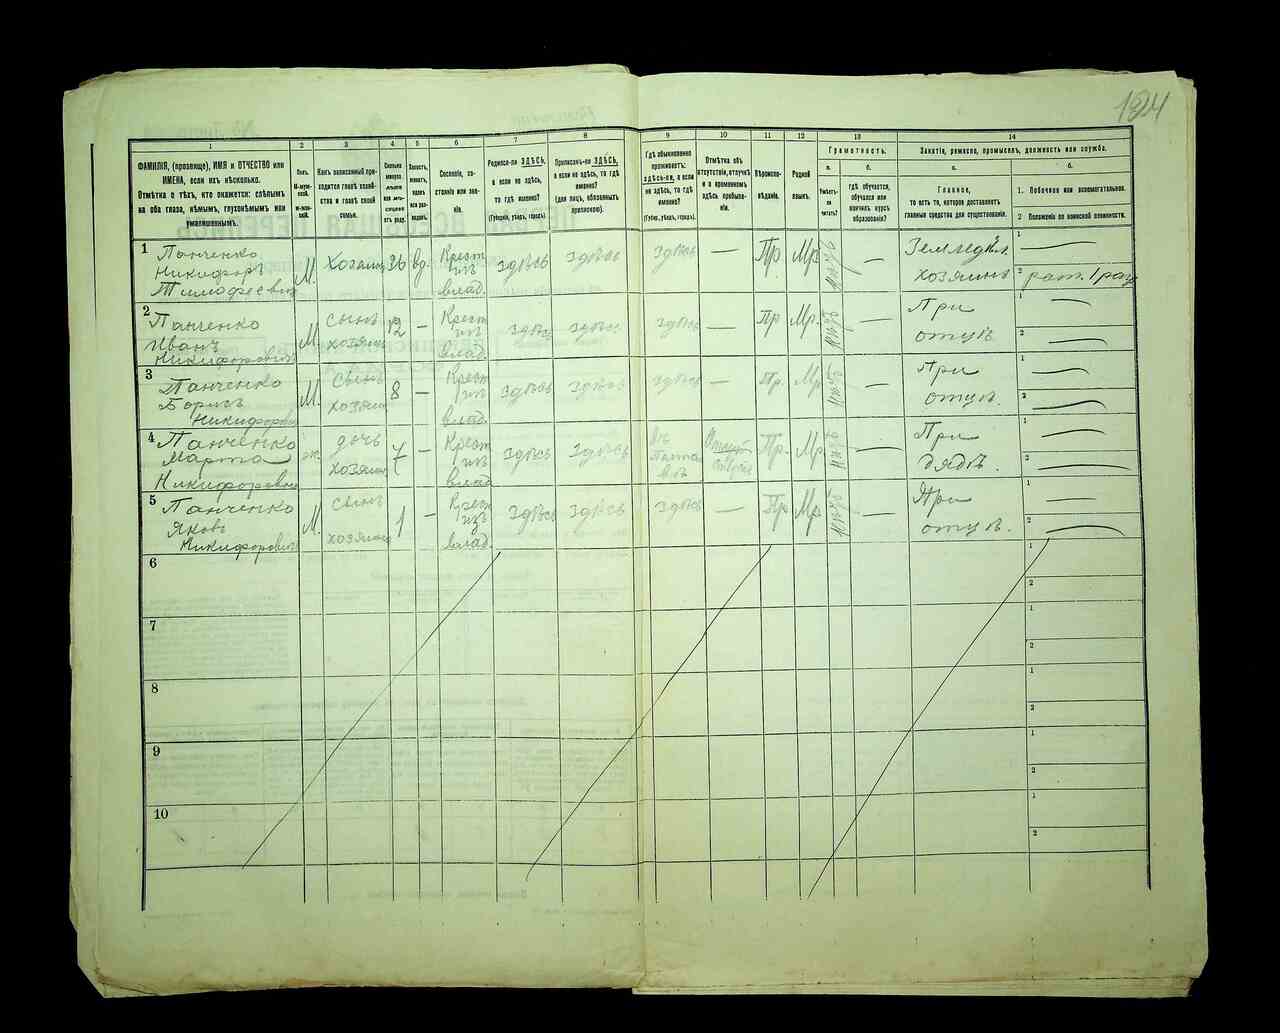 184
1 2 3 4 5 6 7 8 9 10 11 12 13 14
ФАМИЛІЯ, (прозвище), ИМЯ и ОТЧЕСТВО или ИМЕНА, если ихъ нѣсколько.
Отмѣтка о тѣхъ, кто окажется: слѣпымъ на оба глаза, нѣмымъ, глухонѣмымъ или умалишеннымъ.
Полъ.
М-мужской.
ж-женский.
Какъ записанный приходится главѣ хозяйства и главѣ своей семьи.
Сколько минуло лѣтъ или мѣсяцевъ отъ роду.
Холостъ, женатъ, вдовъ или разведенъ.
Сословіе, состояніе или званіе.
Родился-ли ЗДѢСЬ, а если не здѣсь, то гдѣ именно?
(Губернія, уѣздъ, городъ).
Приписанъ-ли ЗДѢСЬ, а если не здѣсь, то гдѣ именно?
(для лицъ, обязанныхъ припискою).
Гдѣ обыкновенно проживаетъ: здѣсь-ли, а если не здѣсь, то гдѣ именно?
(Губер., уѣздъ, городъ).
Отмѣтка объ отсутствіи, отлучкѣ и о временномъ здѣсь пребываніи.
Вѣроисповѣданіе.
Родной языкъ.
Грамотность.
а.
Умѣетъ-ли читать?
б.
гдѣ обучается, обучался или кончилъ курсъ образованія?
Занятія, ремесло, промыселъ, должность или служба.
а.
Главное,
то есть то, которое доставляетъ главныя средства для существованія.
б.
1. Побочное или вспомогательное.
2 Положеніе по воинской повинности.
1 Панченко Никифоръ Тимофеевич М. Хозяинъ 36 вд. Крест изъ влад. здѣсь здѣсь здѣсь — Пр. Мр. — Земледѣл. хозяинъ 1 — 2 рат. 1 раз
2 Панченко Иванъ Никифоровичъ М. сынъ хозяина 12 — Крест изъ влад. здѣсь здѣсь здѣсь — Пр Мр. — При отцѣ. 1 — 2 —
3 Панченко Борисъ Никифоров М. сынъ хозяина 8 — Крест изъ влад. здѣсь здѣсь здѣсь — Пр. Мр — При отцѣ. 1 — 2 —
4 Панченко Марта Никифоровна ж. дочь хозяина 7 — Крест изъ влад здѣсь здѣсь Пр. Мр — При дядѣ. 1 — 2 —
5 Панченко Яковъ Никифоровичъ М. сынъ хозяина 1 — Крест изъ влад. здѣсь здѣсь здѣсь — Пр Мр — При отцѣ. 1 — 2 —
6 1 2
7 1 2
8 1 2
9 1 2
10 1 2